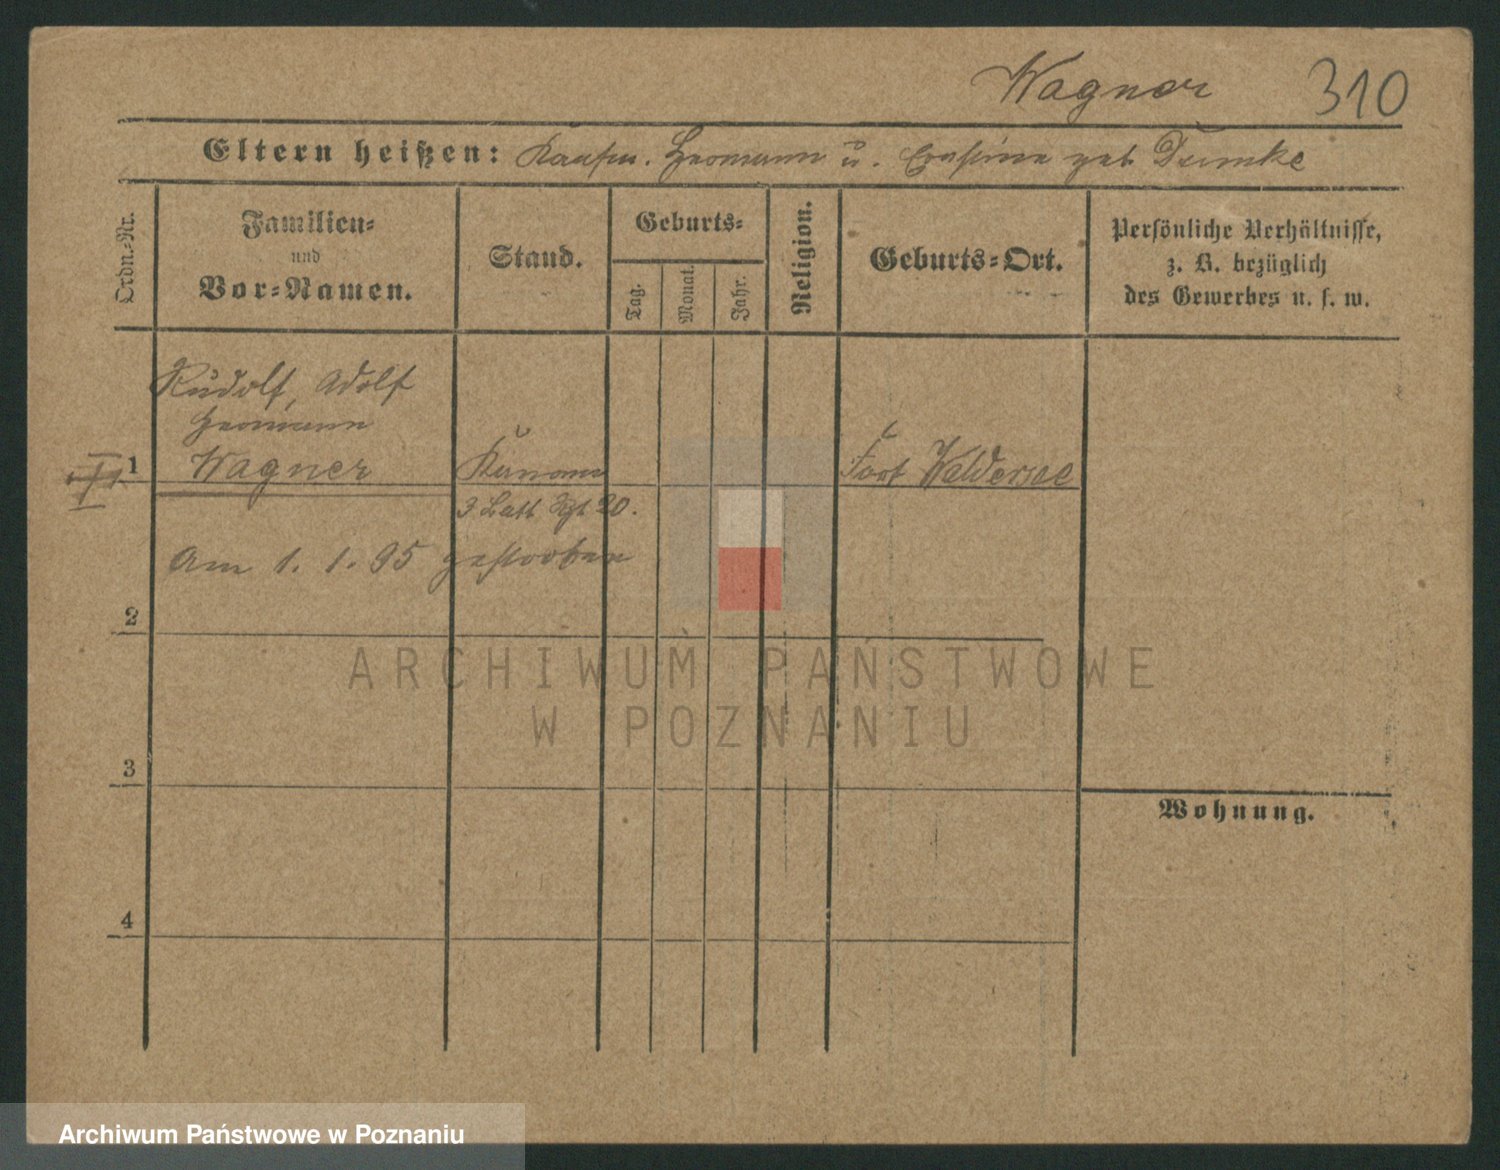 Wagner 310
Eltern heißen: Kaufm. Hermann u. geb Dumke
Ordn.-Nr.
Familien-
und
Vor-Namen.
Stand.
Geburts-
Tag.
Monat.
Jahr.
Religion.
Geburts-Ort.
Persönliche Verhältnisse,
z. B. bezüglich
des Gewerbes u. s. w.
Rudolf, Adolf
Hermann
I 1 Wagner Fort Waldersee
3 Batt Rgt 20.
Am 1. 1. 95 gestorben
2
3
4
Wohnung.
ARCHIWUM PAŃSTWOWE
W POZNANIU
Archiwum Państwowe w Poznaniu